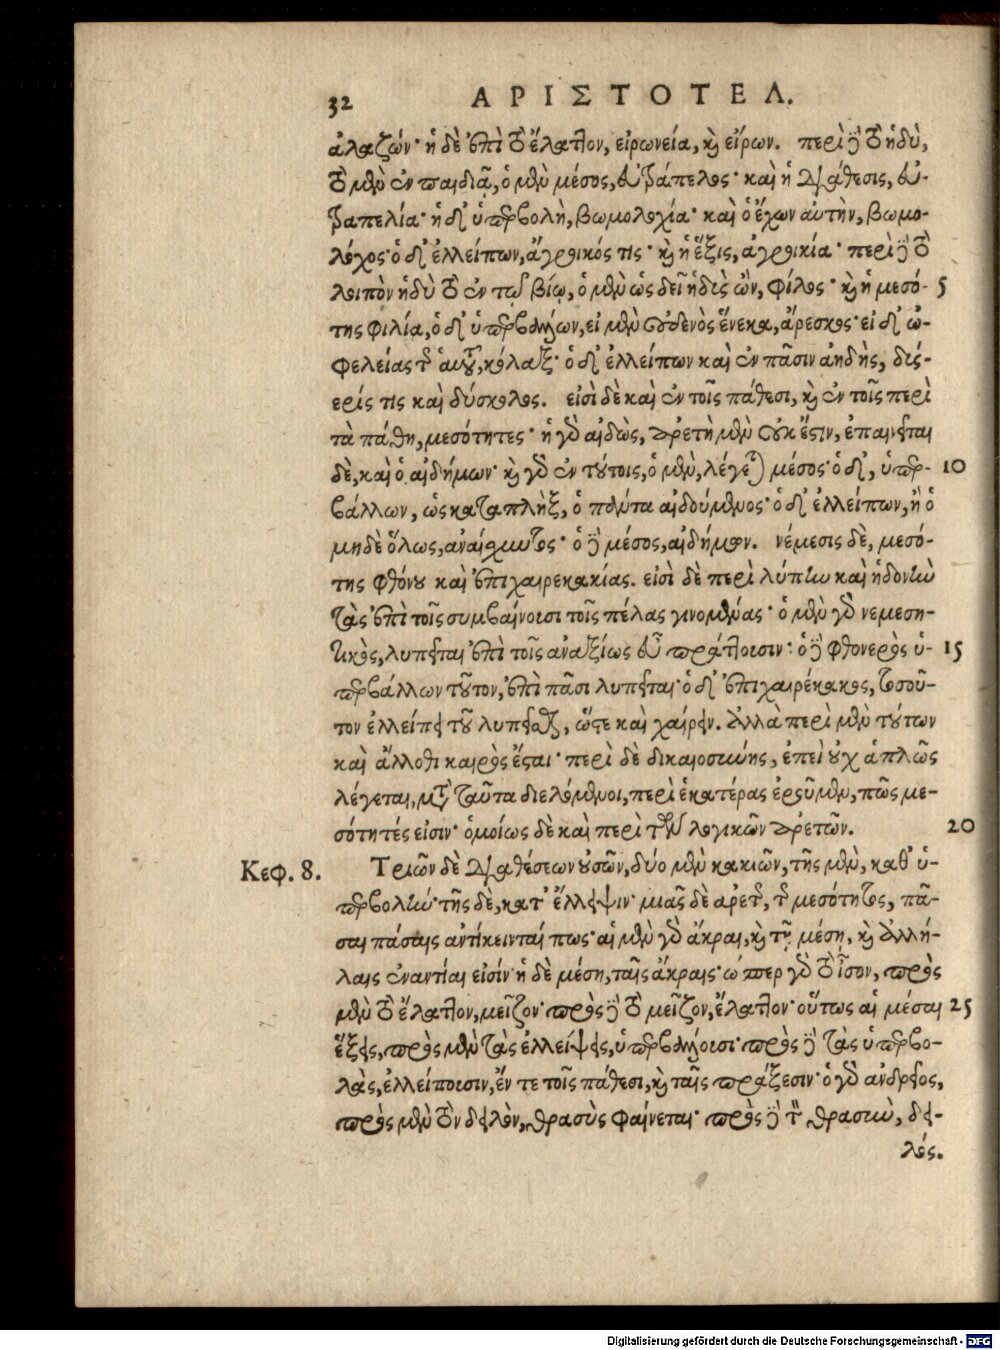 32 ΑΡΙΣΤΟΤΕΛ.
ἀλαζών· ἡ δὲ ἐπὶ τὸ ἔλαττον, εἰρωνεία, καὶ εἴρων. περὶ δὲ τὸ ἡδὺ,
τὸ μὲν ἐν παιδιᾷ, ὁ μὲν μέσος, εὐτράπελος· καὶ ἡ διάθεσις, εὐ-
τραπελία· ἡ δ' ὑπερβολὴ, βωμολοχία· καὶ ὁ ἔχων αὐτὴν, βωμο-
λόχος· ὁ δ' ἐλλείπων, ἄγροικός τις· καὶ ἡ ἕξις, ἀγροικία· περὶ δὲ τὸ
λοιπὸν ἡδὺ τὸ ἐν τῷ βίῳ, ὁ μὲν ὡς δεῖ ἡδὺς ὢν, φίλος· καὶ ἡ μεσό- 5
της φιλία, ὁ δ' ὑπερβάλλων, εἰ μὲν οὐδενὸς ἕνεκα, ἄρεσκος· εἰ δ' ὠ-
φελείας τῆς αὑτοῦ, κόλαξ· ὁ δ' ἐλλείπων καὶ ἐν πᾶσιν ἀηδὴς, δύς-
ερίς τις καὶ δύσκολος. εἰσὶ δὲ καὶ ἐν τοῖς πάθεσι, καὶ ἐν τοῖς περὶ
τὰ πάθη, μεσότητες· ἡ γὰρ αἰδὼς, ἀρετὴ μὲν οὐκ ἔστιν, ἐπαινεῖται
δὲ, καὶ ὁ αἰδήμων· καὶ γὰρ ἐν τούτοις, ὁ μὲν, λέγεται μέσος· ὁ δ', ὑπερ- 10
βάλλων, ὡς καταπλὴξ, ὁ πάντα αἰδούμενος· ὁ δ' ἐλλείπων, ἢ ὁ
μηδὲ ὅλως, ἀναίσχυντος· ὁ δὲ μέσος, αἰδήμων. νέμεσις δὲ, μεσό-
της φθόνου καὶ ἐπιχαιρεκακίας. εἰσὶ δὲ περὶ λύπην καὶ ἡδονὴν
τὰς ἐπὶ τοῖς συμβαίνουσι τοῖς πέλας γινομένας· ὁ μὲν γὰρ νεμεση-
τικὸς, λυπεῖται ἐπὶ τοῖς ἀναξίως εὖ πράττουσιν· ὁ δὲ φθονερὸς ὑ- 15
περβάλλων τοῦτον, ἐπὶ πᾶσι λυπεῖται· ὁ δ' ἐπιχαιρέκακος, τοσοῦ-
τον ἐλλείπει τοῦ λυπεῖσθαι, ὥστε καὶ χαίρειν. ἀλλὰ περὶ μὲν τούτων
καὶ ἄλλοθι καιρὸς ἔσται· περὶ δὲ δικαιοσύνης, ἐπεὶ οὐχ ἁπλῶς
λέγεται, μετὰ ταῦτα διελόμενοι, περὶ ἑκατέρας ἐροῦμεν, πῶς με-
σότητές εἰσιν· ὁμοίως δὲ καὶ περὶ τῶν λογικῶν ἀρετῶν. 20
Κεφ. 8. Τριῶν δὲ διαθέσεων οὐσῶν, δύο μὲν κακιῶν, τῆς μὲν, καθ' ὑ-
περβολὴν· τῆς δὲ, κατ' ἔλλειψιν· μιᾶς δὲ ἀρετῆς, τῆς μεσότητος, πᾶ-
σαι πάσαις ἀντίκεινταί πως· αἱ μὲν γὰρ ἄκραι, καὶ τῇ μέσῃ, καὶ ἀλλή-
λαις ἐναντίαι εἰσίν· ἡ δὲ μέση, ταῖς ἄκραις· ὥσπερ γὰρ τὸ ἶσον, πρὸς
μὲν τὸ ἔλαττον, μεῖζον· πρὸς δὲ τὸ μεῖζον, ἔλαττον· οὕτως αἱ μέσαι 25
ἕξεις, πρὸς μὲν τὰς ἐλλείψεις, ὑπερβάλλουσι· πρὸς δὲ τὰς ὑπερβο-
λὰς, ἐλλείπουσιν, ἔν τε τοῖς πάθεσι, καὶ ταῖς πράξεσιν· ὁ γὰρ ἀνδρεῖος,
πρὸς μὲν τὸν δειλὸν, θρασὺς φαίνεται· πρὸς δὲ τὸν θρασὺν, δει-
λός.
Digitalisierung gefördert durch die Deutsche Forschungsgemeinschaft - DFG